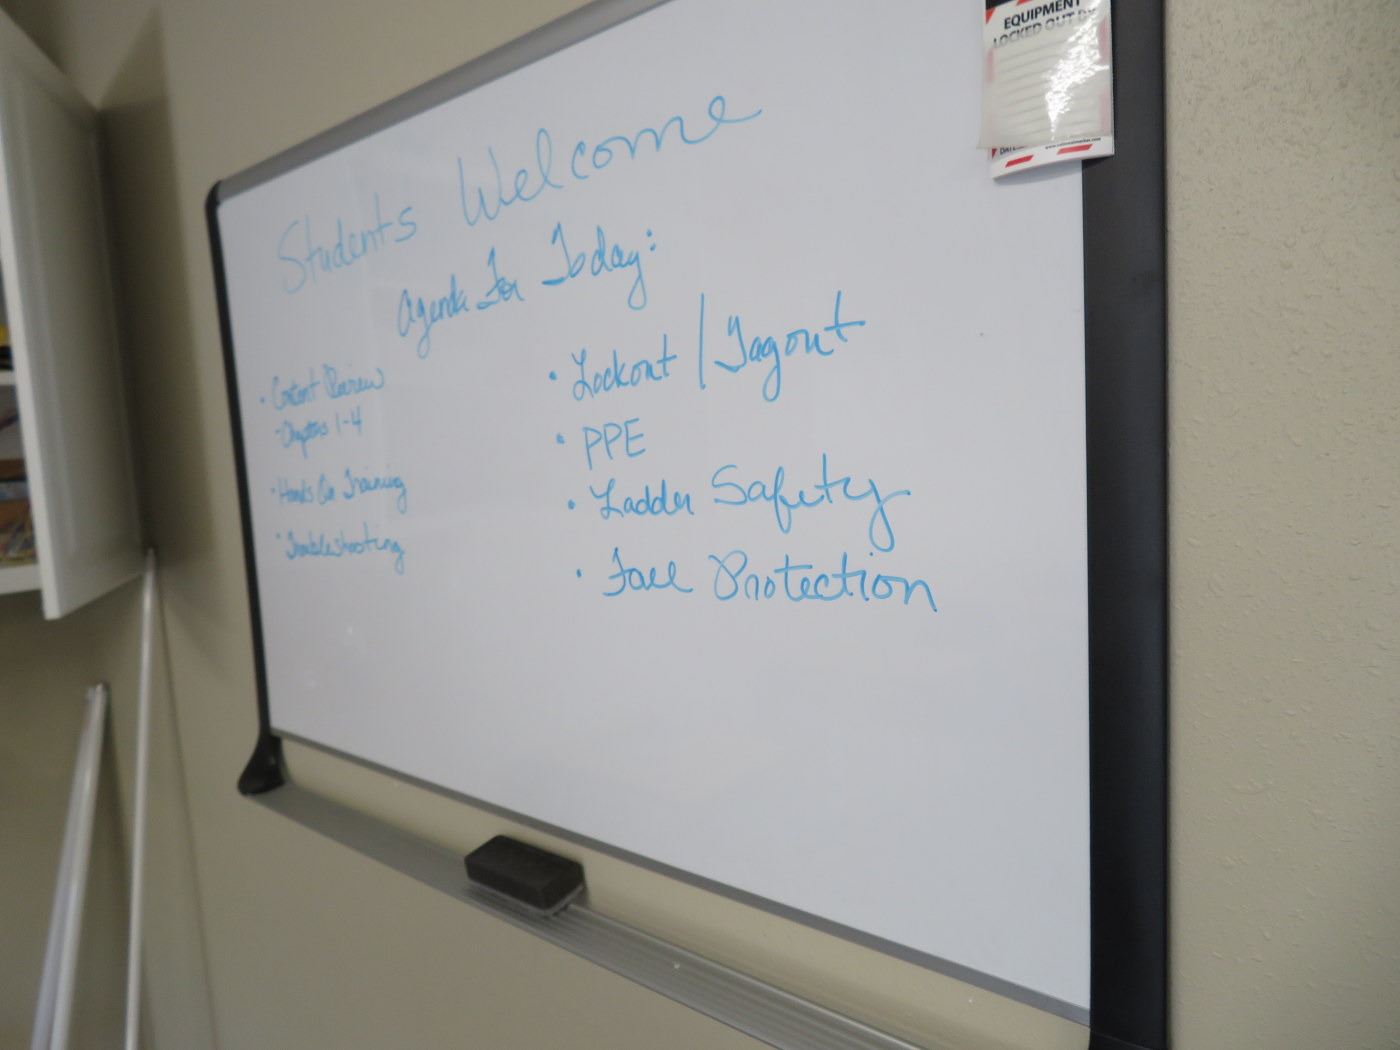 Students Welcome
Agenda For Today:
• Content Review
- Chapters 1-4
• Hands On Training
• Troubleshooting
• Lockout / Tagout
• PPE
• Ladder Safety
• Fall Protection
EQUIPMENT
LOCKED OUT
DATE
www.nationalmarker.com